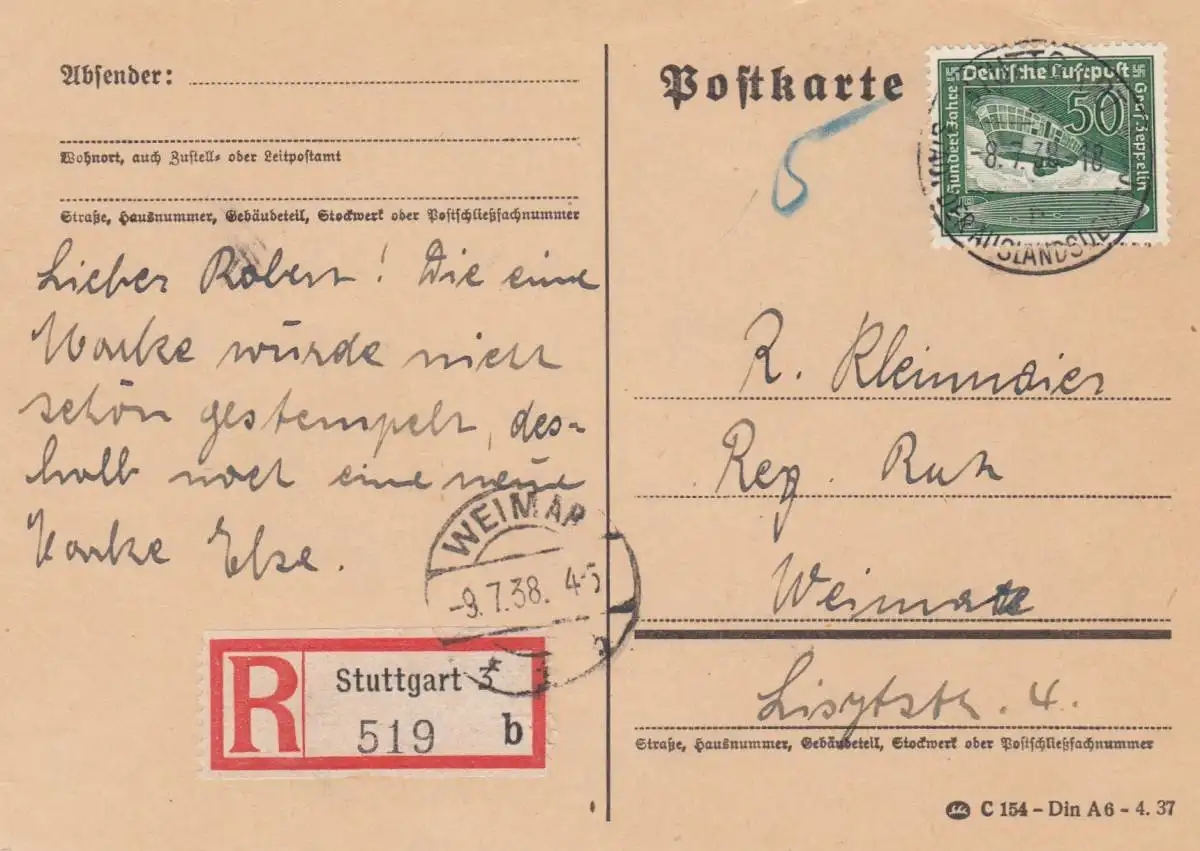 Absender:
Wohnort, auch Zustell- oder Leitpostamt
Straße, Hausnummer, Gebäudeteil, Stockwerk oder Postschließfachnummer
Lieber Robert! Die eine
Marke wurde nicht
schön gestempelt, des-
halb noch eine neue
Karte Else.
WEIMAR
-9.7.38. 4-5
R
Stuttgart 3
519 b
Postkarte
5
Deutsche Luftpost
Hundert Jahre
Graf Zeppelin
50
-8.7.38-18
AUSLANDS
R. Kleinmaier
Reg. Rat
Weimar
4.
Straße, Hausnummer, Gebäudeteil, Stockwerk oder Postschließfachnummer
C 154 - Din A6 - 4. 37